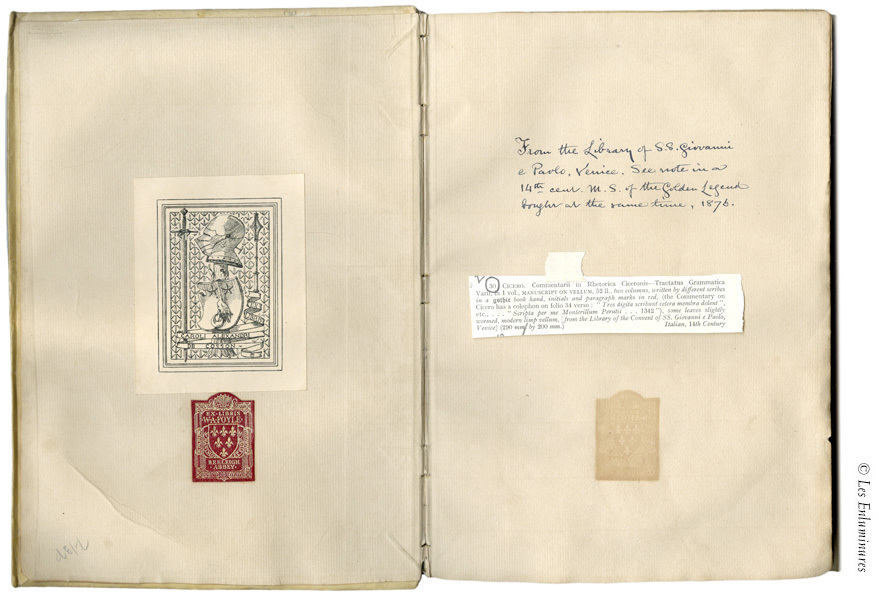 CAROLI ALEXANDRI
DE COSSON
EX·LIBRIS
W·A·FOYLE
BEELEIGH
ABBEY
From the Library of S.S. Giovanni
e Paolo, Venice. See note in a
14th cent. M.S. of the Golden Legend
bought at the same time, 1876.
30 CICERO. Commentarii in Rhetorica Ciceronis—Tractatus Grammatica
Varii, in 1 vol., MANUSCRIPT ON VELLUM, 52 ll., two columns, written by different scribes
in a gothic book hand, initials and paragraph marks in red, (the Commentary on
Cicero has a colophon on folio 34 verso: "Tres digita scribunt cetera membra dolent",
etc., . . . "Scripta per me Monterilium Perutii . . . 1342"), some leaves slightly
wormed, modern limp vellum, [from the Library of the Convent of SS. Giovanni e Paolo,
Venice) (290 mm. by 200 mm.) Italian, 14th Century
© Les Enluminures